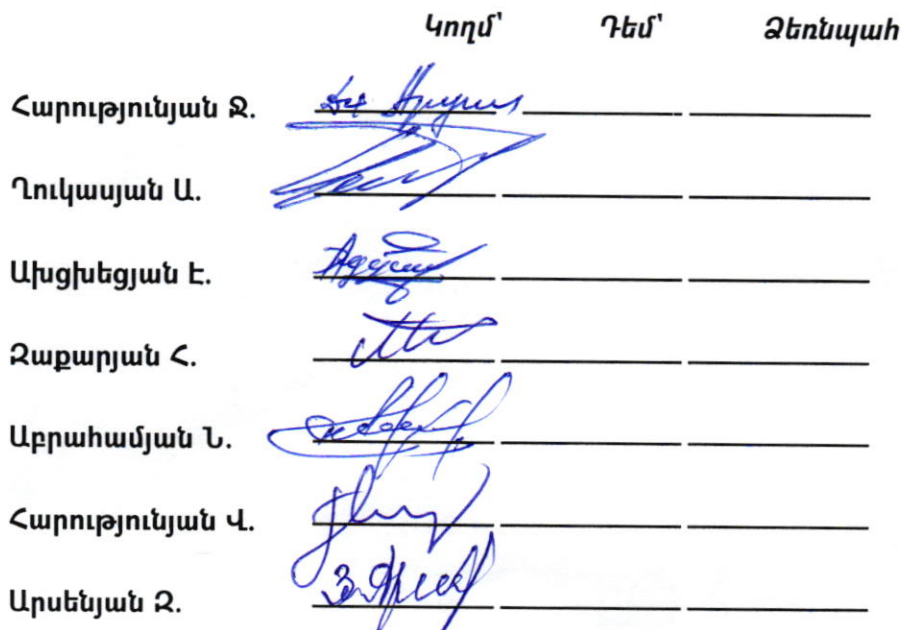 Կողմ՝ Դեմ՝ Ձեռնպահ
Հարությունյան Ջ.
Ղուկասյան Ա.
Ախսցխեցյան Է.
Զաքարյան Հ.
Աբրահամյան Ն.
Հարությունյան Վ.
Արսենյան Զ.